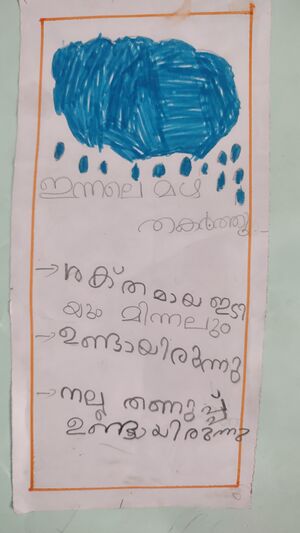 ഇന്നലെ മഴ
തകർത്തു
→ശക്തമായ ഇടി
യും മിന്നലും
→ഉണ്ടായിരുന്നു
→നല്ല തണുപ്പ്
ഉണ്ടായിരുന്നു